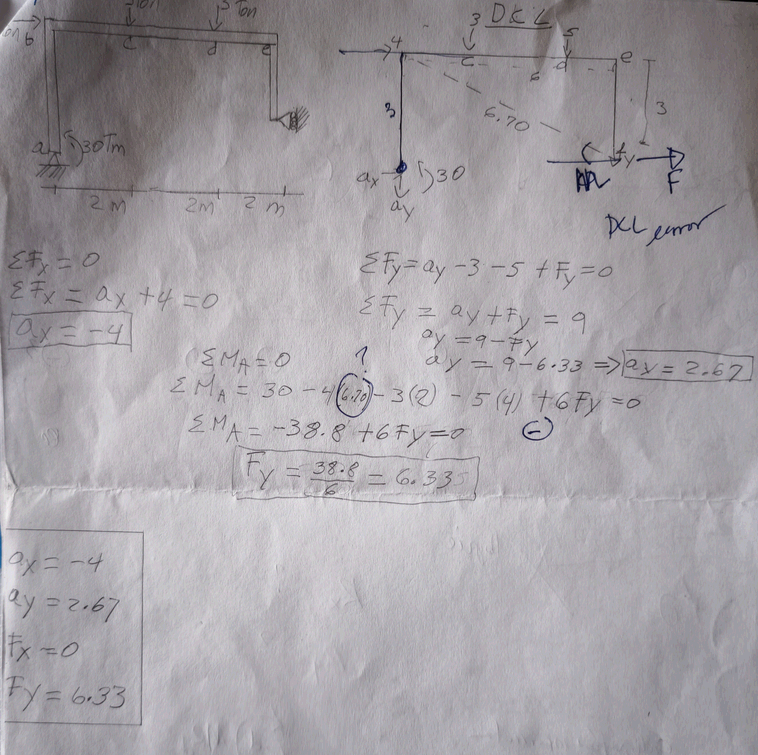 5 Ton
b
c
d
e
a
30Tm
2 m
2m
2 m
DCL
3
5
4
c
d
e
6
3
6.70
3
ax
30
ay
Fy
F
DCL error
ΣFx = 0
ΣFx = ax + 4 = 0
ax = -4
ΣFy = ay - 3 - 5 + Fy = 0
ΣFy = ay + Fy = 9
ay = 9 - Fy
ay = 9 - 6.33 => ay = 2.67
ΣMA = 0
?
ΣMA = 30 - 4(6.70) - 3(2) - 5(4) + 6Fy = 0
ΣMA = -38.8 + 6Fy = 0
(-)
Fy = 38.8/6 = 6.335
ax = -4
ay = 2.67
Fx = 0
Fy = 6.33